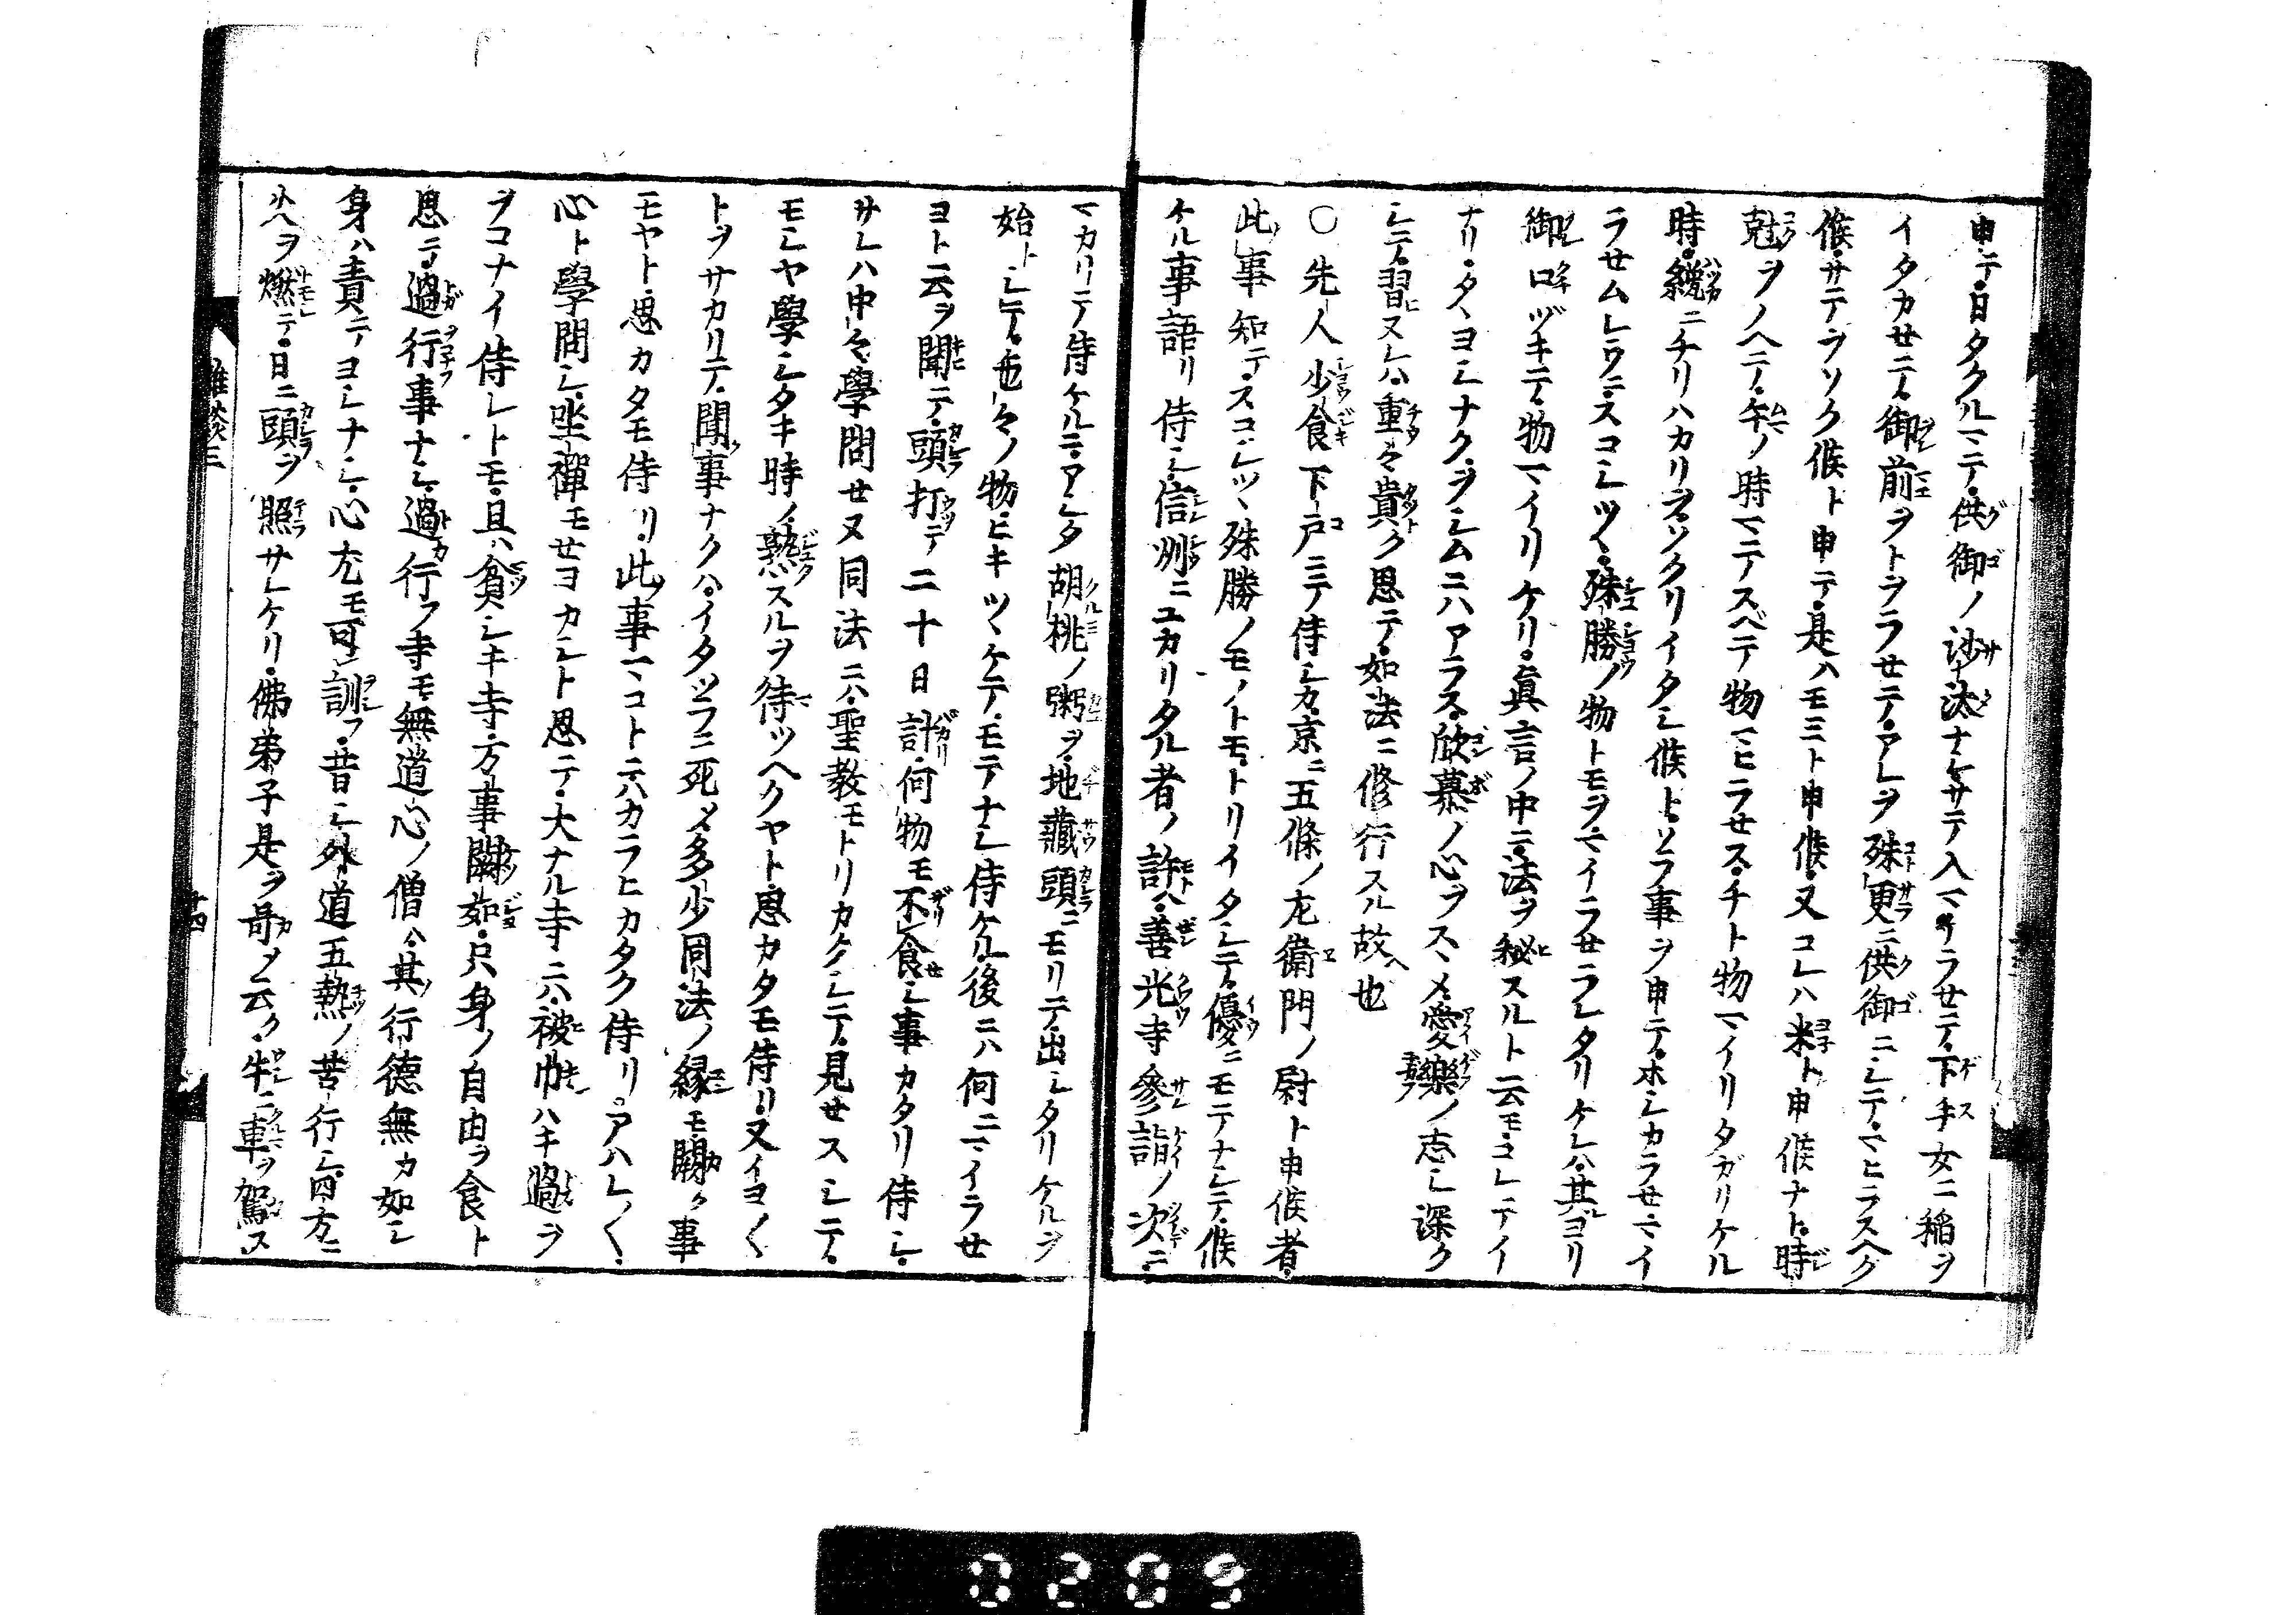 申テ日タクルマテ供御ノ沙汰ナケサテ入マイラセテ下手女ニ稲ヲ
イタカせテ御前ヲトヲラせテアレヲ殊更ニ供御ニシテマヒラスヘク
候サテラソク候ト申テ是ハモミト申候又コレハ米ト申候ナト時
剋ヲノヘテ午ノ時マテスベテ物マヒラせス チト物マイリタガリケル
時纔ニチリハカリヲソクリイタシ候トソラ事ヲ申テホシカラせマイ
ラせムレウニスコシツヽ殊勝ノ物トモヲマイラせラレタリケレハ其ヨリ
御口ヅキテ物マイリケリ眞言ノ中ニ法ヲ秘スルト云モコレテイ
ナリタヽヨシナクヲシムニハアラス欣慕ノ心ヲスヽメ愛樂ノ志シ深ク
シテ習ヒヌレハ重々貴ク思テ如法ニ修行スル故也
〇先人少食下戸ニテ侍シカ京ニ五條ノ左衛門ノ尉ト申候者
此事知テスコシツヽ殊勝ノモノトモトリイタシテ優ニモテナシテ候
ケル事語リ侍シ信州ニユカリタル者ノ許ヘ善光寺參詣ノ次ニ
マカリテ侍ケルニアシタ胡桃ノ粥ヲ地藏頭ニモリテ出シタリケルヲ
始トシテ也々ノ物ヒキツヽケテモテナシ侍ケル後ニハ何ニマイラせ
ヨト云ヲ聞テ頭打テ二十日計何物モ不食せシ事カタリ侍シ
サレハ中々學問せヌ同法ニハ聖教モトリカクシテ見せスシテ
モシヤ學シタキ時ノ熟スルヲ待ツヘクヤト思カタモ侍リ又イヨ〱
トヲサカリテ聞事ナクハイタツラニ死メ多少同法ノ縁モ闕ク事
モヤト思カタモ侍リ此事マコトニハカラヒカタク侍リアハレ〱
心ト學問シ坐禪モせヨカシト思テ大ナル寺ニハ被巾ハキ過ヲ
ヲコナイ侍レトモ且ハ貧シキ寺方事闕如只身ノ自由ヲ食ト
思テ過行事ナシ過行フ寺モ無道心ノ僧ハ其行德無カ如シ
身ハ責テヨシナシ心尤モ可訓フ昔シ外道五熱ノ苦行シ四方ニ
火ヲ燃テ日ニ頭ヲ照サレケリ佛弟子是ヲ哥メ云ク牛ニ車ヲ駕ス
雜談三
十四
0209